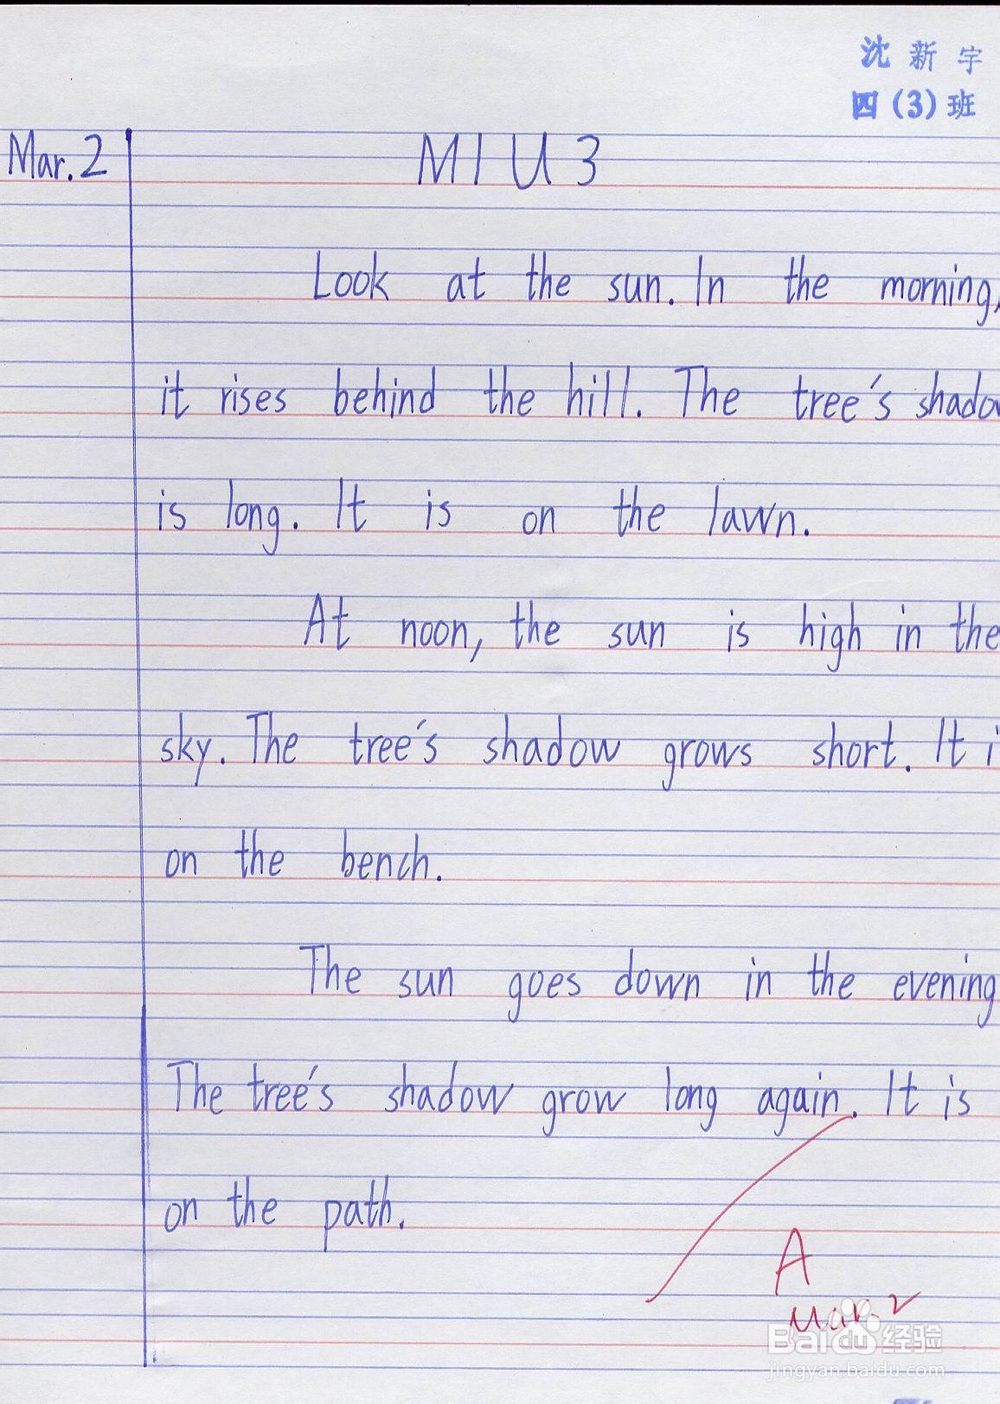 沈新宇
四(3)班
Mar. 2
M1U3
Look at the sun. In the morning,
it rises behind the hill. The tree's shadow
is long. It is on the lawn.
At noon, the sun is high in the
sky. The tree's shadow grows short. It i
on the bench.
The sun goes down in the evening
The tree's shadow grow long again. It is
on the path.
A
Mar. 2
Baidu经验
jingyan.baidu.com